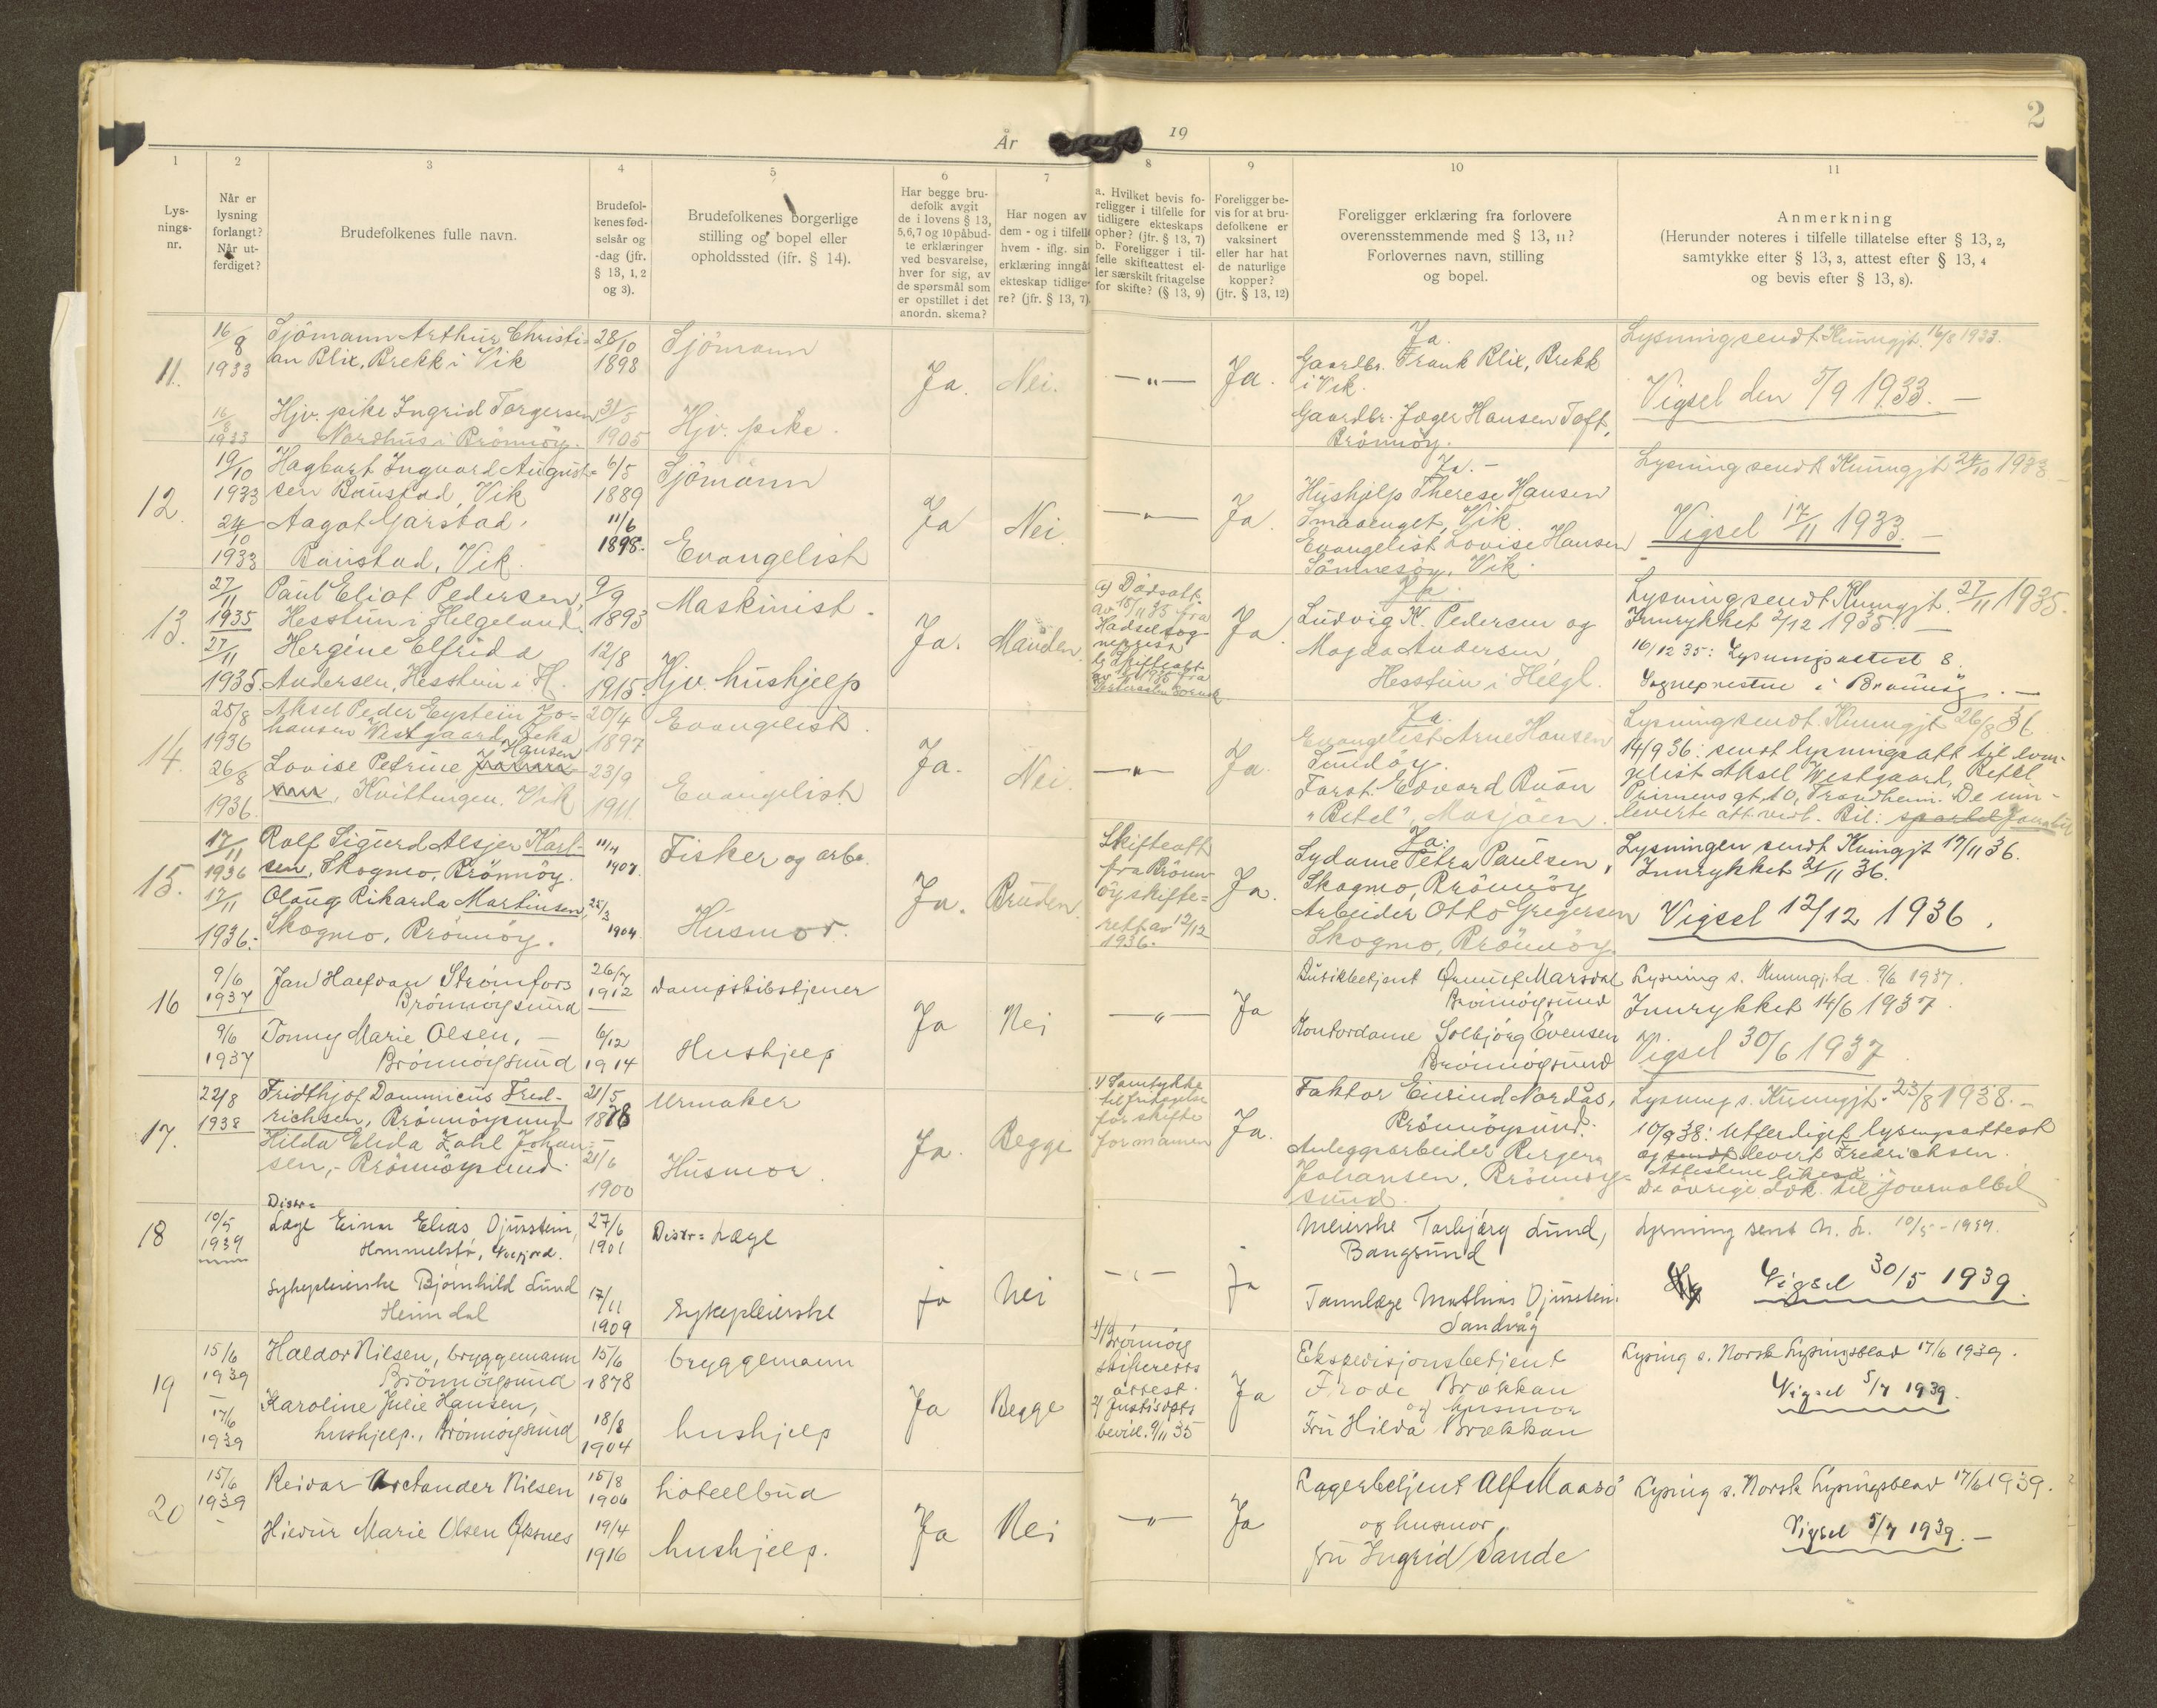 2
År
19
1
2
3
4
5
6
7
8
9
10
11
Lys-
nings-
nr.
Når er
lysning
forlangt?
Når ut-
ferdiget?
Brudefolkenes fulle navn.
Brudefol-
kenes fød-
selsår og
-dag (jfr.
§ 13, 1, 2
og 3).
Brudefolkenes borgerlige
stilling og bopel eller
opholdssted (jfr. § 14).
Har begge bru-
defolk avgit
de i lovens § 13,
5,6,7 og 10 påbud-
te erklæringer
ved besvarelse,
hver for sig, av
de spørsmål som
er opstillet i det
anordn. skema?
Har nogen av
dem - og i tilfelle
hvem - iflg. sin
erklæring inngåt
ekteskap tidlige-
re? (jfr. § 13, 7).
a. Hvilket bevis fo-
religger i tilfelle for
tidligere ekteskaps
opher? (jfr. § 13, 7)
b. Foreligger i til-
felle skifteattest el-
ler særskilt fritagelse
for skifte? (§ 13, 9)
Foreligger be-
vis for at bru-
defolkene er
vaksinert
eller har hat
de naturlige
kopper?
(jfr. § 13, 12)
Foreligger erklæring fra forlovere
overensstemmende med § 13, 11?
Forlovernes navn, stilling
og bopel.
Anmerkning
(Herunder noteres i tilfelle tillatelse efter § 13, 2,
samtykke efter § 13, 3, attest efter § 13, 4
og bevis efter § 13, 8).
11.
16/8
1933
Sjömann Arthur Christi-
an Blix, Brekk i Vik
28/10
1898
Sjömann
16/8
1933
Hjv. pike Ingrid Torgersen
Nordhus i Brönnöy.
31/5
1905
Hjv. pike.
Ja.
Nei.
— " —
Ja.
Ja.
Gaardbr. Frank Blix, Brekk
i Vik.
Gaardbr. Jæger Hansen Toft,
Brönnöy.
Lysning sendt Kunngjt. 16/8 1933.
Vigsel den 5/9 1933. —
12.
19/10
1933
Hagbart Ingvard August-
sen Baustad, Vik
6/5
1889
Sjömann
24/10
1933
Aagot Garstad,
Baustad, Vik.
11/6
1898.
Evangelist
Ja
Nei.
— " —
Ja.
Ja. -
Hushjelp Therese Hansen
Vik.
Evangelist Lovise Hansen
Sömnesöy, Vik.
Lysning sendt Kunngjt 24/10 1933
Vigsel 17/11 1933. —
13.
27/11
1935
Paul Eliot Pedersen,
Hesstun i Helgeland.
9/9
1893
Maskinist.
27/11
1935
Hergine Elfrida
Andersen, Hesstun i H.
12/8
1915.
Hjv. hushjelp
Ja.
Manden.
a) Dödsatt.
av 18/11 35 fra
Hadsel sog-
neprest
b) Skifteatt.
Ja
Ja.
Ludvig K. Pedersen og
Magda Andersen,
Hesstun i Helgl.
Lysning sendt Kunngjt. 27/11 1935.
Innrykket 2/12 1935. —
16/12 35: Lysningsattest s.
Sognepresten i Brönnöy. —
14.
25/8
1936
Aksel Peder Eystein Jo-
hansen Westgaard,
20/4
1897
Evangelist.
26/8
1936.
Lovise Petrine Hansen
Kvittingen, Vik
23/9
1911.
Evangelist
Ja.
Nei.
— " —
Ja.
Ja.
Evangelist Arne Hansen
Sundöy.
Forst. Edvard Buan
"Betel", Mosjöen.
Lysning sendt Kunngjt 26/8 36
14/9 36: sendt lysningsatt til evan-
gelist Aksel Westgaard, Betel
Prinsens gt. 10, Trondheim. De inn-
leverte att vedl. Bil:
15.
17/11
1936
Rolf Sigurd Alsjer Karl-
sen, Skogmo, Brönnöy.
11/4
1907.
Fisker og arb.
17/11
1936.
Olaug Rikarda Martinsen,
Skogmo, Brönnöy.
25/3
1904
Husmor.
Ja.
Bruden.
Skifteatt
fra Brönn-
öy skifte-
rett av 12/12
1936.
Ja.
Ja.
Sydame Petra Paulsen,
Skogmo, Brönnöy
Arbeider Otto Gregersen
Skogmo, Brönnöy.
Lysningen sendt Kunngjt 17/11 36.
Innrykket 21/11 36.
Vigsel 12/12 1936.
16
9/6
1937
Jan Halfdan Strömfors
Brönnöysund
26/7
1912
Dampskibstjener
9/6
1937
Tonny Marie Olsen, —
Brönnöysund
6/12
1914
Hushjelp
Ja
Nei
— " —
Ja
Butikbetjent Marsdal
Brönnöysund
Kontordame Solbjörg Evensen
Brönnöysund
Lysning s. Kunngj. td. 9/6 1937.
Innrykket 14/6 1937.
Vigsel 30/6 1937
17.
22/8
1938
Fridthjof Dominicus Fred-
richsen, Brönnöysund
21/5
1878
Urmaker
Hilda Elida Zahl Johan-
sen, - Brönnöysund.
21/6
1900
Husmor.
Ja.
Begge
1) Samtykke
til fritagelse
for skifte
for mannen
Ja.
Faktor Eivind Nordås,
Brönnöysund.
Anleggsarbeider Birger
Johansen, Brönnöy-
sund.
Lysning s. Kunngjt. 23/8 1938. —
10/9 38: Utferdiget lysningsattest
og sendt levert Fredrichsen.
Attestene likeså
De övrige dok. til journalbil
18
10/5
1939
Distr=
Læge Einar Elias Djursstein,
Hommelstö, Velfjord.
27/6
1901
Distr= Læge
Sykepleierske Björnhild Lund
Heimdal
17/11
1909
Sykepleierske
ja
nei
— " —
ja
Meierske Torbjörg Lund,
Bangsund
Tannlæge Mathias Djursstein.
Sandvåg
Lysning sent N. L. 10/5 - 1939.
Vigsel 30/5 1939.
19
15/6
1939
Haldor Nilsen, bryggemann
Brönnöysund
15/6
1878
bryggemann
17/6
1939
Karoline Julie Hansen,
hushjelp., Brönnöysund
18/8
1904
hushjelp
Ja
Begge
1) Brönnöy
skifteretts
attest.
2) Justisdpts
bevill. 9/11 35
Ja
Ekspedisjonsbetjent
Frode Brækkan
og husmor
Fru Hilda Brækkan
Lysing s. Norsk Lysingsblad 17/6 1939.
Vigsel 5/7 1939.
20
15/6
1939
Reidar Arctander Nilsen
15/8
1906
hotellbud
Marie Olsen Öksnes
19/4
1916
hushjelp.
Ja
Nei
— " —
Ja
Lagerbetjent Alf Maasö
og husmor,
fru Ingrid Sande
Lysing s. Norsk Lysingsblad 17/6 1939.
Vigsel 5/7 1939. —